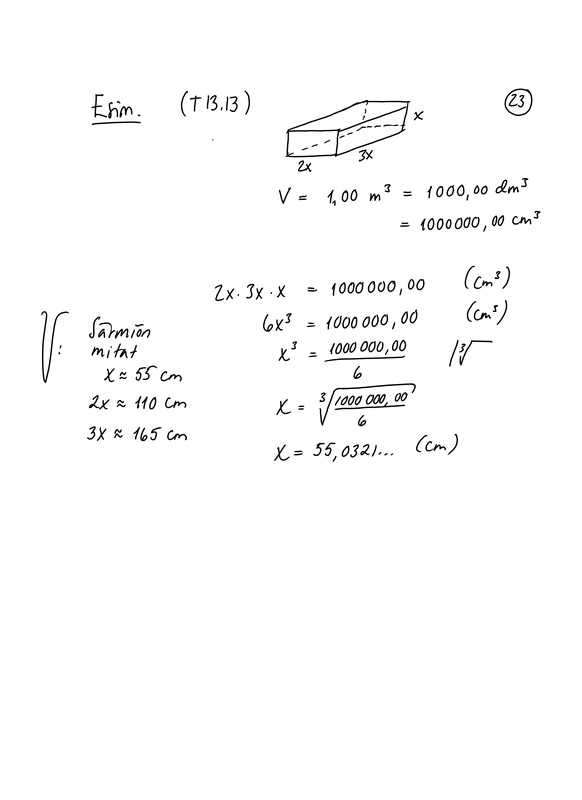 Esim. (T 13.13) 23
x
2x 3x
V = 1,00 m³ = 1000,00 dm³
= 1000000,00 cm³
2x · 3x · x = 1000000,00 (cm³)
6x³ = 1000000,00 (cm³)
x³ = 1000000,00 / 6 |∛
x = ∛(1000000,00 / 6)
x = 55,0321... (cm)
V: Särmiön
mitat
x ≈ 55 cm
2x ≈ 110 cm
3x ≈ 165 cm